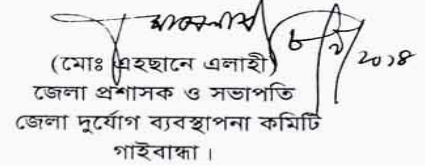 ২০১৪
(মোঃ এহছানে এলাহী)
জেলা প্রশাসক ও সভাপতি
জেলা দুর্যোগ ব্যবস্থাপনা কমিটি
গাইবান্ধা ।